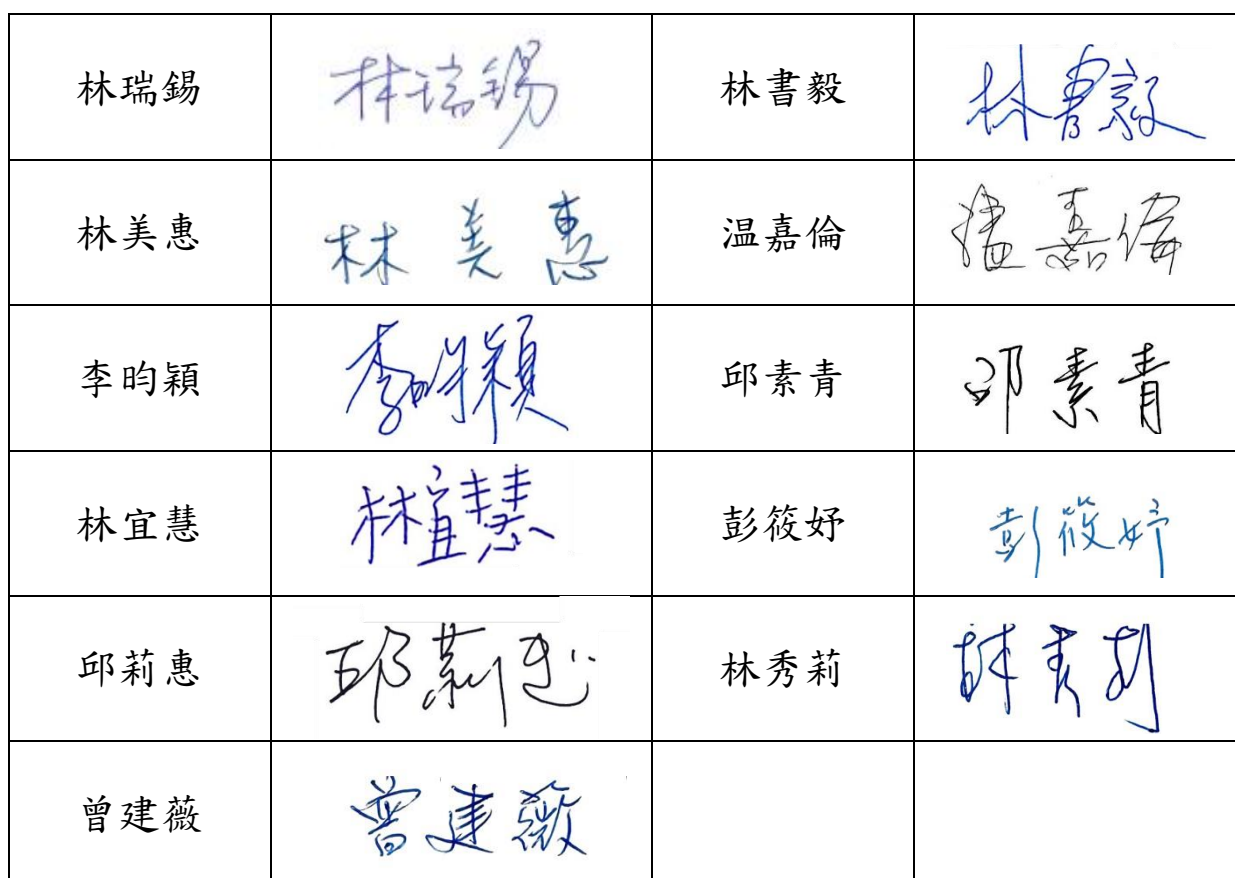 林瑞錫 林瑞錫 林書毅 林書毅
林美惠 林美惠 温嘉倫 温嘉倫
李昀穎 李昀穎 邱素青 邱素青
林宜慧 林宜慧 彭筱妤 彭筱妤
邱莉惠 邱莉惠 林秀莉 林秀莉
曾建薇 曾建薇